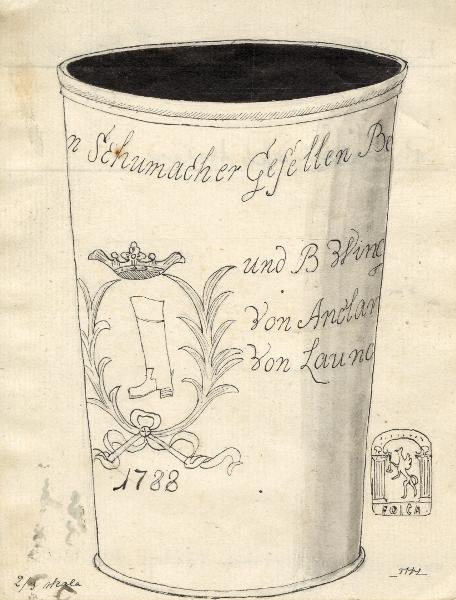 n Schumacher Gesellen Be
und B Wing
Von Anclam
Von Launc
1788
FOLCA
2/3 skala